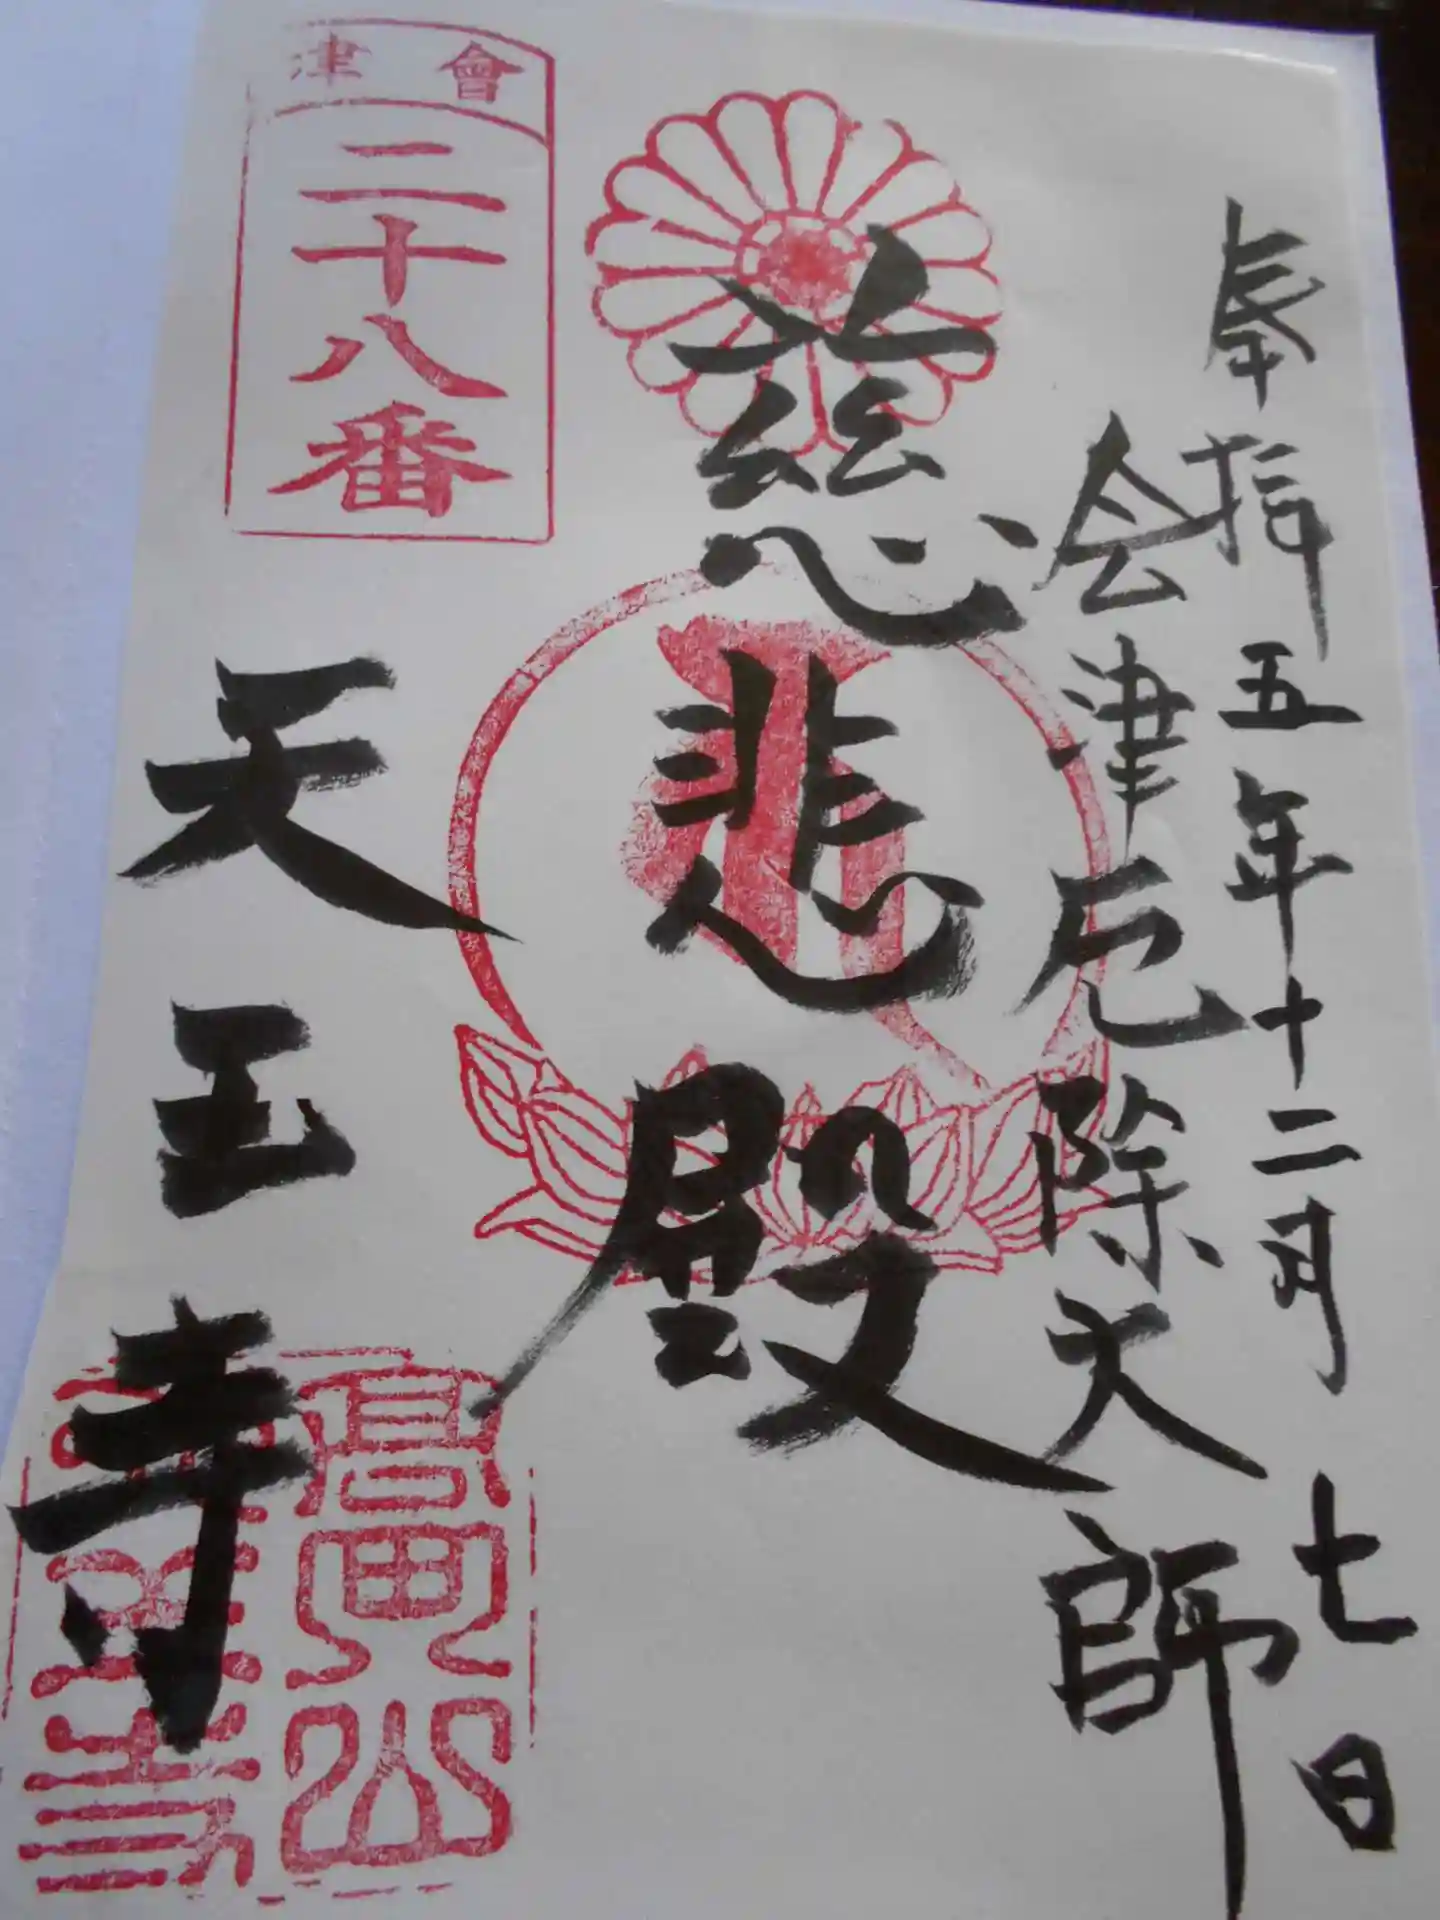 奉拝 五年十二月七日
会津厄除大師
慈悲殿
會津
二十八番
天王寺
高田山